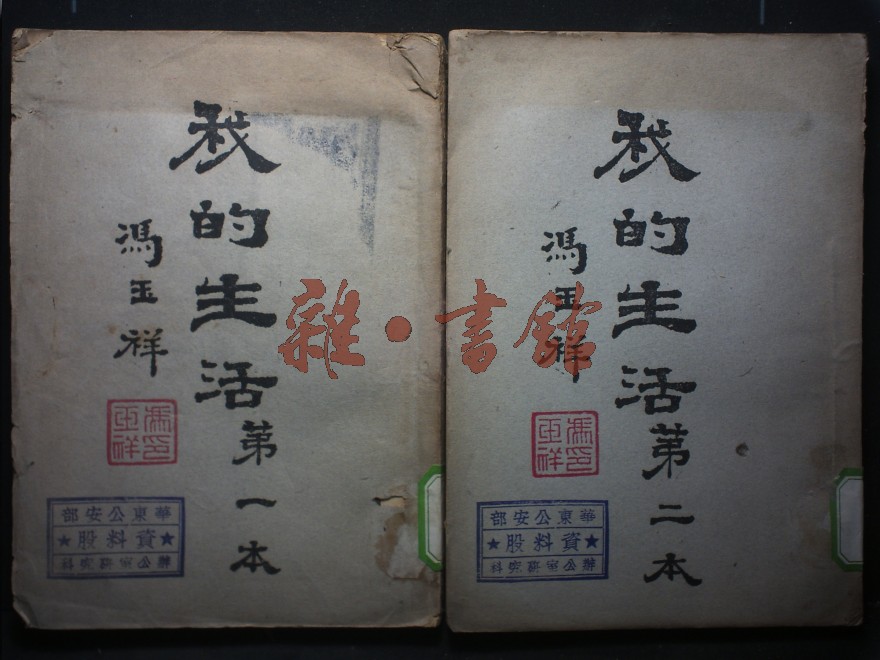 我的生活第一本
馮玉祥
馮玉祥印
華東公安部
★資料股★
辦公室研究科
我的生活第二本
馮玉祥
馮玉祥印
華東公安部
★資料股★
辦公室研究科
雜·書館